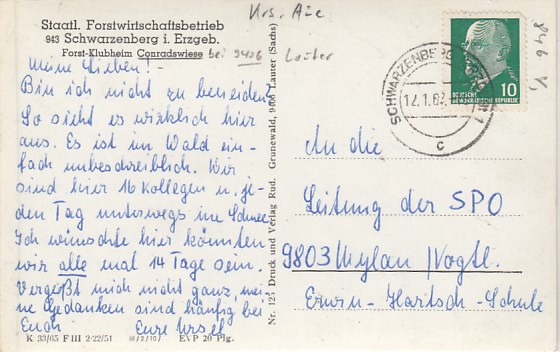 Staatl. Forstwirtschaftsbetrieb
943 Schwarzenberg i. Erzgeb.
Forst-Klubheim Conradswiese bei 9426 Lauter
Krs. Aue
Meine Lieben! -
Bin ich nicht zu beneiden?
So sieht es wirklich hier
aus. Es ist im Wald ein-
fach unbeschreiblich. Wir
sind hier 16 Kollegen u. je-
den Tag unterwegs im Schnee.
Ich wünschte hier könnten
wir alle mal 14 Tage sein.
Vergeßt mich nicht ganz, mei-
ne Gedanken sind häufig bei
Euch Eure Ursel
K 33/65 F III 2/22/51 EVP 20 Pfg.
Druck und Verlag Rud. Grunewald, Lauter (Sachs)
SCHWARZENBERG
12.1.
c
DEUTSCHE
DEMOKRATISCHE REPUBLIK
10
An die
Leitung der SPO
9803 Mylau /Vogtl.
Erwin-Hartsch-Schule